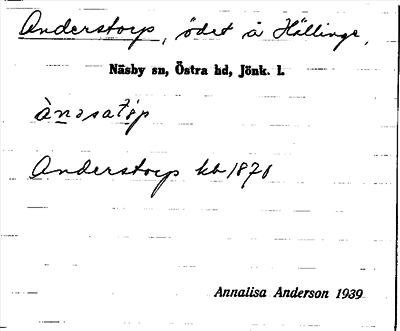 Anderstorp, ödet å Hällinge,
Näsby sn, Östra hd, Jönk. l.
ànəsatå̀p
Anderstorp kb 1870
Annalisa Anderson 1939